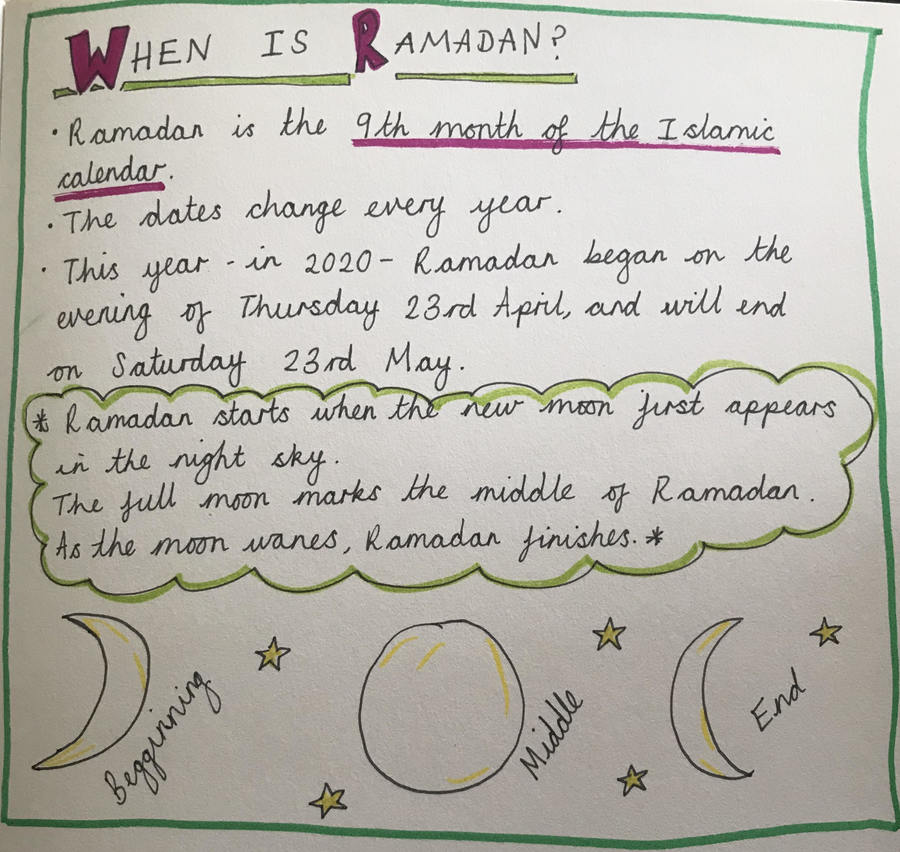 WHEN IS RAMADAN?
· Ramadan is the 9th month of the Islamic
calendar.
· The dates change every year.
· This year - in 2020 - Ramadan began on the
evening of Thursday 23rd April, and will end
on Saturday 23rd May.
* Ramadan starts when the new moon first appears
in the night sky.
The full moon marks the middle of Ramadan.
As the moon wanes, Ramadan finishes. *
Begginning
Middle
End